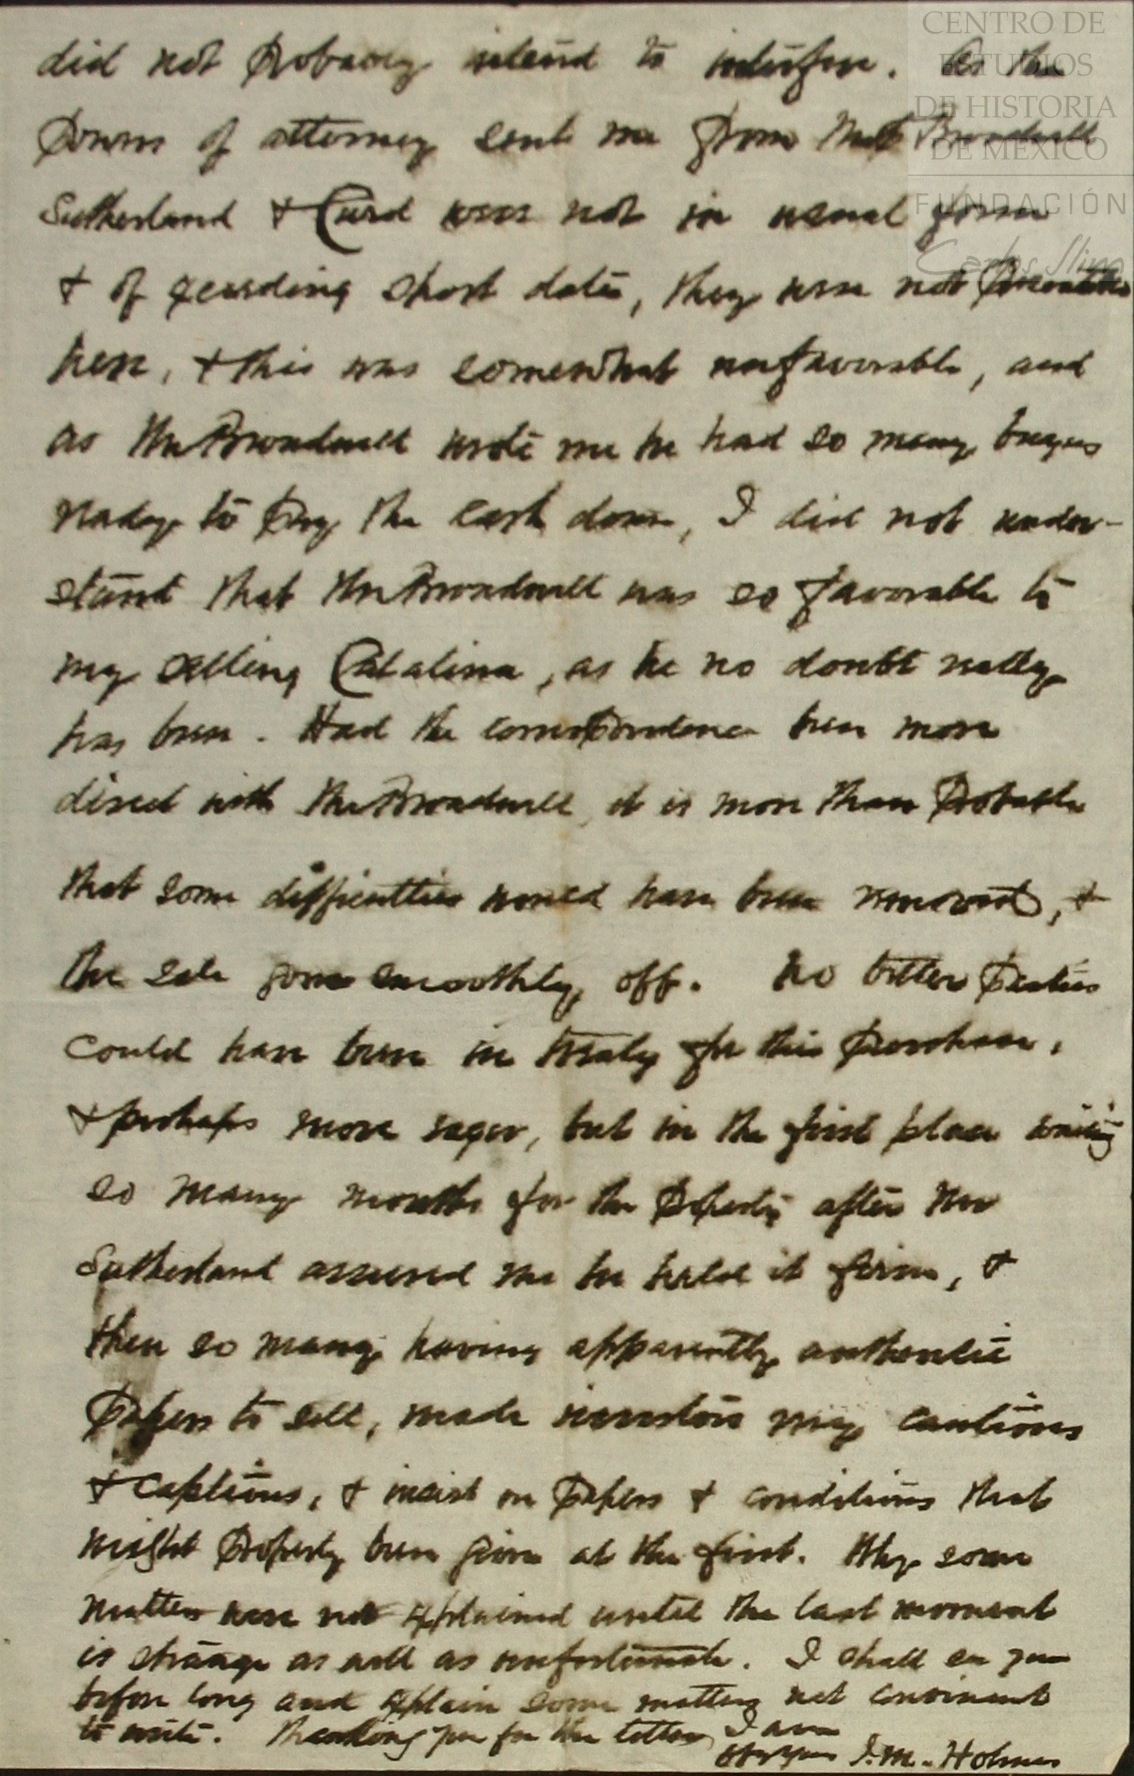 CENTRO DE
ESTUDIOS
DE HISTORIA
DE MÉXICO
FUNDACIÓN
Carlos Slim
did not probably intend to interfere. As the
Powers of attorney sent me from Mess Broadwell
Sutherland & Curd were not in usual form
& of exceeding short date, they were not
here, & this was somewhat unfavorable, and
as Mr Broadwell wrote me he had so many buyers
ready to pay the cash down, I did not under-
stand that Mr Broadwell was so favorable to
my selling Catalina, as he no doubt really
has been. Had the correspondence been more
direct with Mr Broadwell it is more than probable
that some difficulties would have been removed, &
the sale gone smoothly off. No better parties
could have been in treaty for this purchase,
& perhaps more eager, but in the first place waiting
so many months for the property after Mr
Sutherland assured me he held it firm, &
then so many having apparently authentic
papers to sell, made investors very cautious
& captious, & insist on papers & conditions that
might properly been given at the first. Why some
matters were not explained until the last moment
is strange as well as unfortunate. I shall see you
before long and explain some matters not convenient
to write. Thanking you for the letter, I am
yours J. M. Holmes